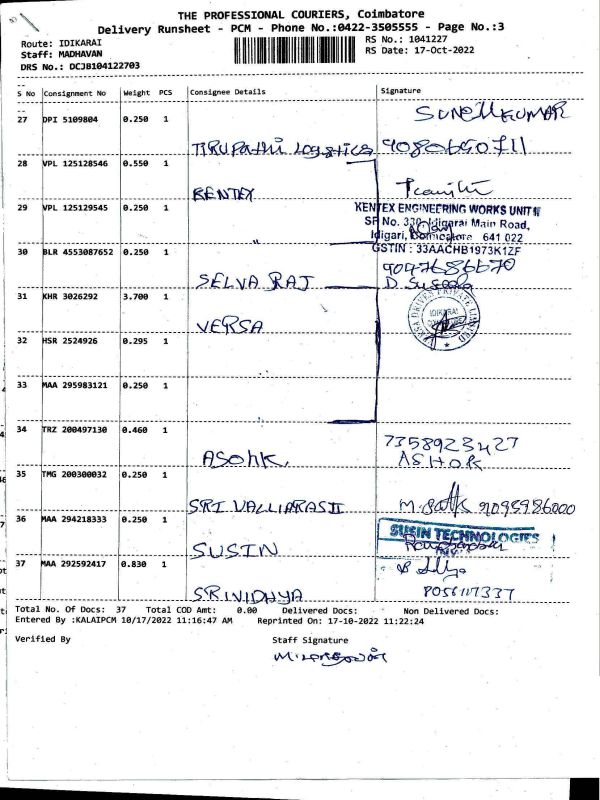 THE PROFESSIONAL COURIERS, Coimbatore
Delivery Runsheet - PCM - Phone No.:0422-3505555 - Page No.:3
Route: IDIKARAI
RS No.: 1041227
Staff: MADHAVAN
RS Date: 17-Oct-2022
DRS No.: DCJB104122703
S No Consignment No Weight PCS Consignee Details Signature
27 DPI 5109804 0.250 1 SUNEILKUMAR
TIRUPATHI Logistics
28 VPL 125128546 0.550 1
KENTEX
29 VPL 125129545 0.250 1 KENTEX ENGINEERING WORKS UNIT II
SF No. 330, Idigarai Main Road,
Idigari, Coimbatore 641 022
GSTIN : 33AACHB1973K1ZF
30 BLR 4553087652 0.250 1 9047686670
SELVA RAJ D. Suseela
31 KHR 3026292 3.700 1
VERSA
32 HSR 2524926 0.295 1
33 MAA 295983121 0.250 1
34 TRZ 200497130 0.460 1 7358923427
ASOHK. ASHOK
35 TMG 200300032 0.250 1
SRI VALLIARASII 9095986000
36 MAA 294218333 0.250 1 SUSIN TECHNOLOGIES
SUSIN
37 MAA 292592417 0.830 1
SRIVIDHYA 8056117337
Total No. Of Docs: 37 Total COD Amt: 0.00 Delivered Docs: Non Delivered Docs:
Entered By :KALAIPCM 10/17/2022 11:16:47 AM Reprinted On: 17-10-2022 11:22:24
Verified By Staff Signature